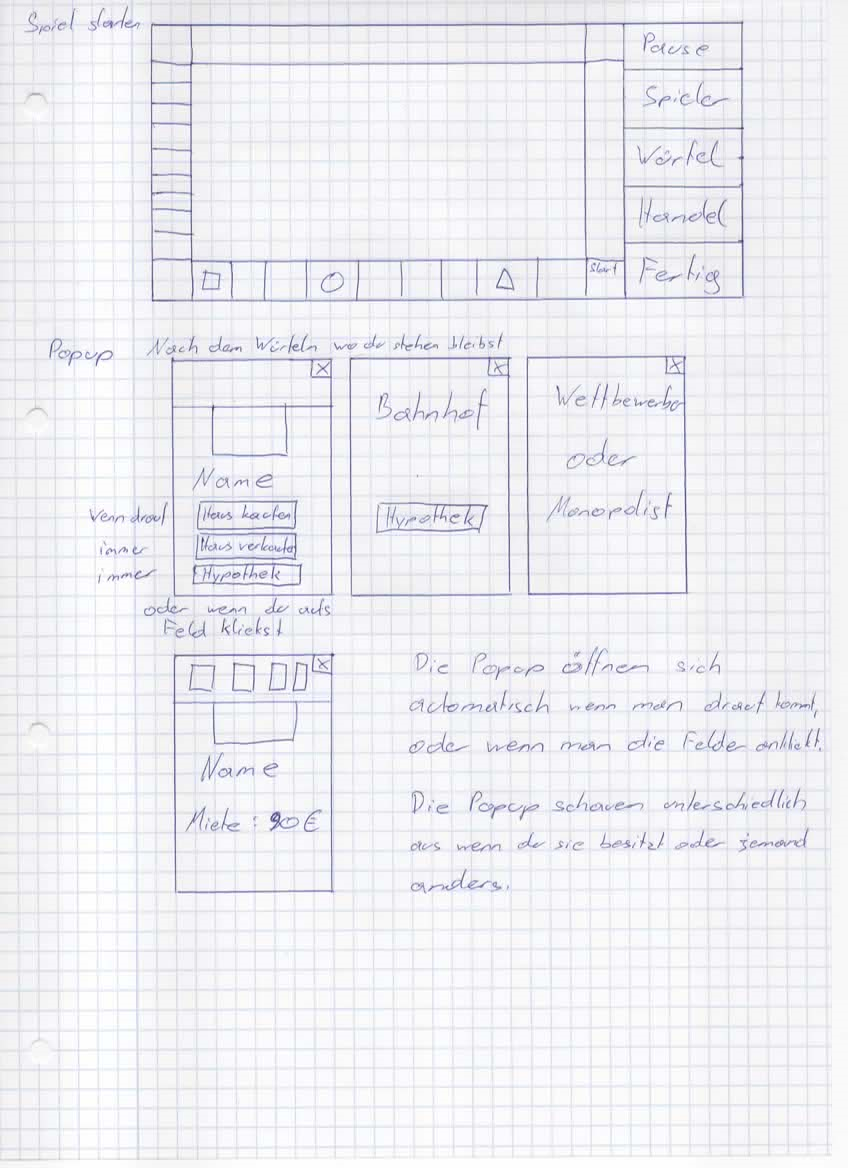 Spiel starten
Pause
Spieler
Würfel
Handel
Start
Fertig
Popup
Nach dem Würfeln wo du stehen bleibst
X
X
X
Name
Wenn drauf
Haus kaufen
immer
Haus verkaufen
immer
Hypothek
Bahnhof
Hypothek
Wettbewerber
oder
Monopolist
oder wenn du aufs
Feld klickst
X
Name
Miete : 90€
Die Popup öffnen sich
automatisch wenn man drauf kommt,
oder wenn man die Felder anklickt.
Die Popup schauen unterschiedlich
aus wenn du sie besitzt oder jemand
anders.